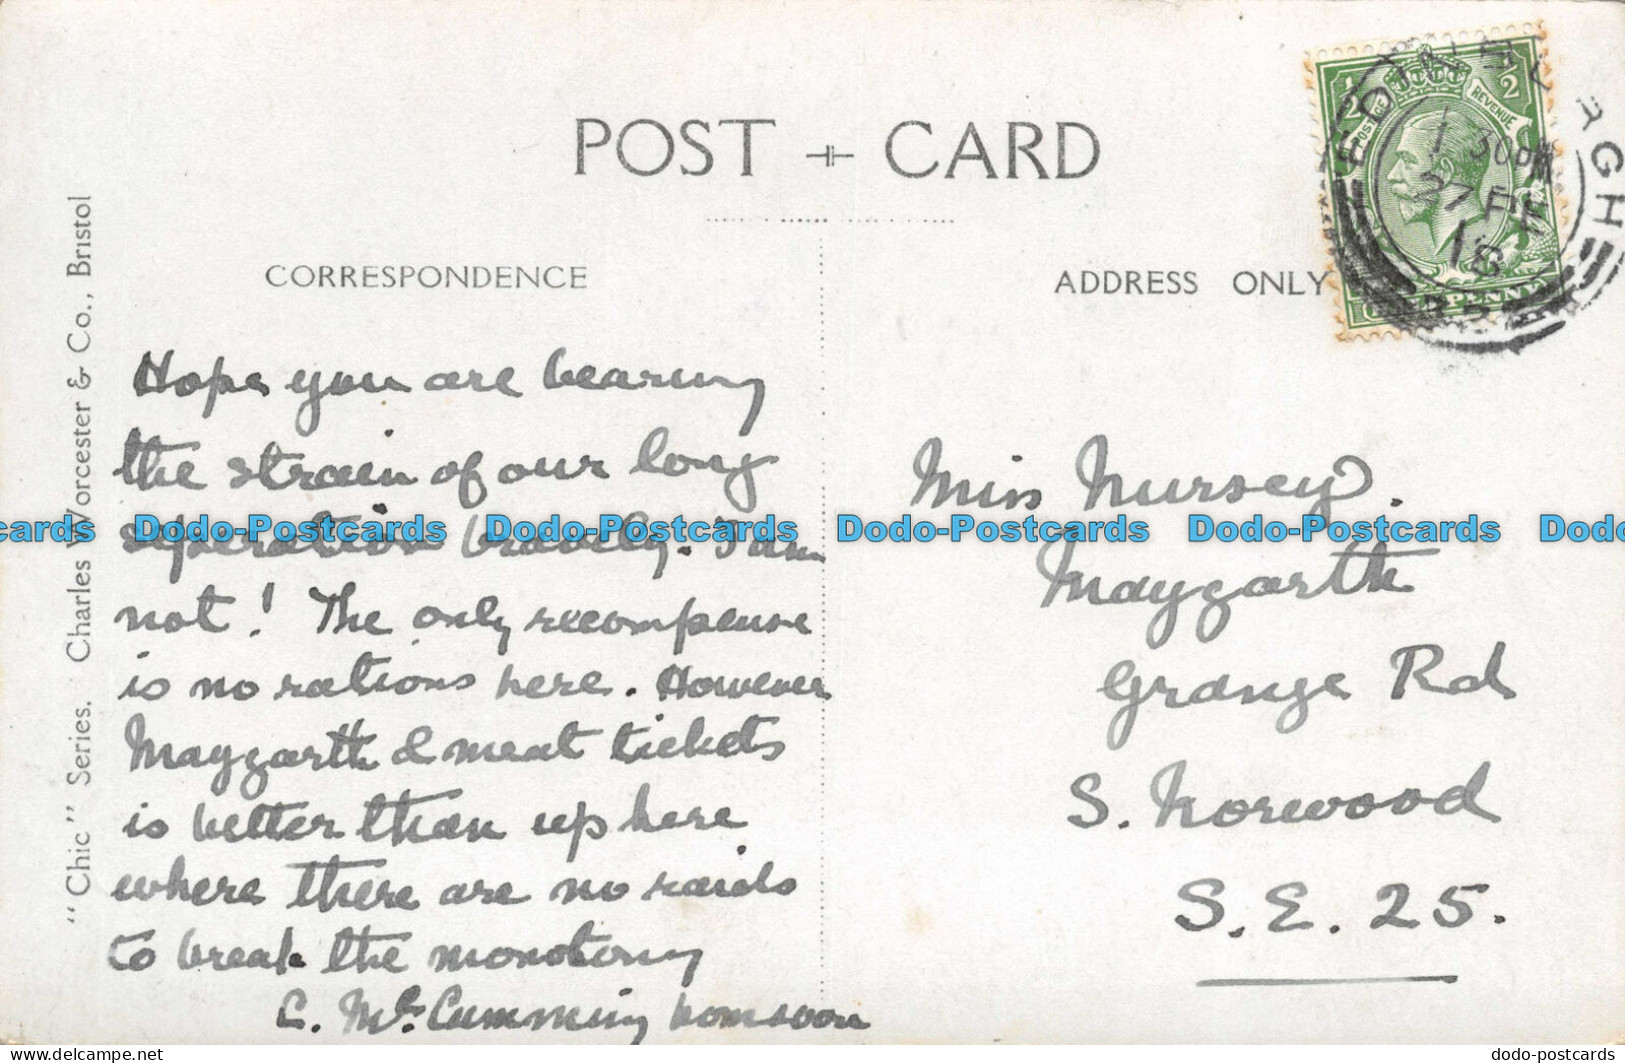 POST CARD
CORRESPONDENCE
ADDRESS ONLY
"Chic" Series. Charles Worcester & Co., Bristol
½ ½
POSTAGE REVENUE
EDINBURGH
1 30PM
27 FE
18
Hope you are bearing
the strain of our long
separation bravely. I am
not! The only recompense
is no rations here. However
Maygarth & meat tickets
is better than up here
where there are no raids
to break the monotony
C. McCumming
Miss Nursey.
Maygarth
Grange Rd
S. Norwood
S.E. 25.
Dodo-Postcards Dodo-Postcards Dodo-Postcards Dodo-Postcards
© dodo-postcards / Delcampe.net
dodo-postcards